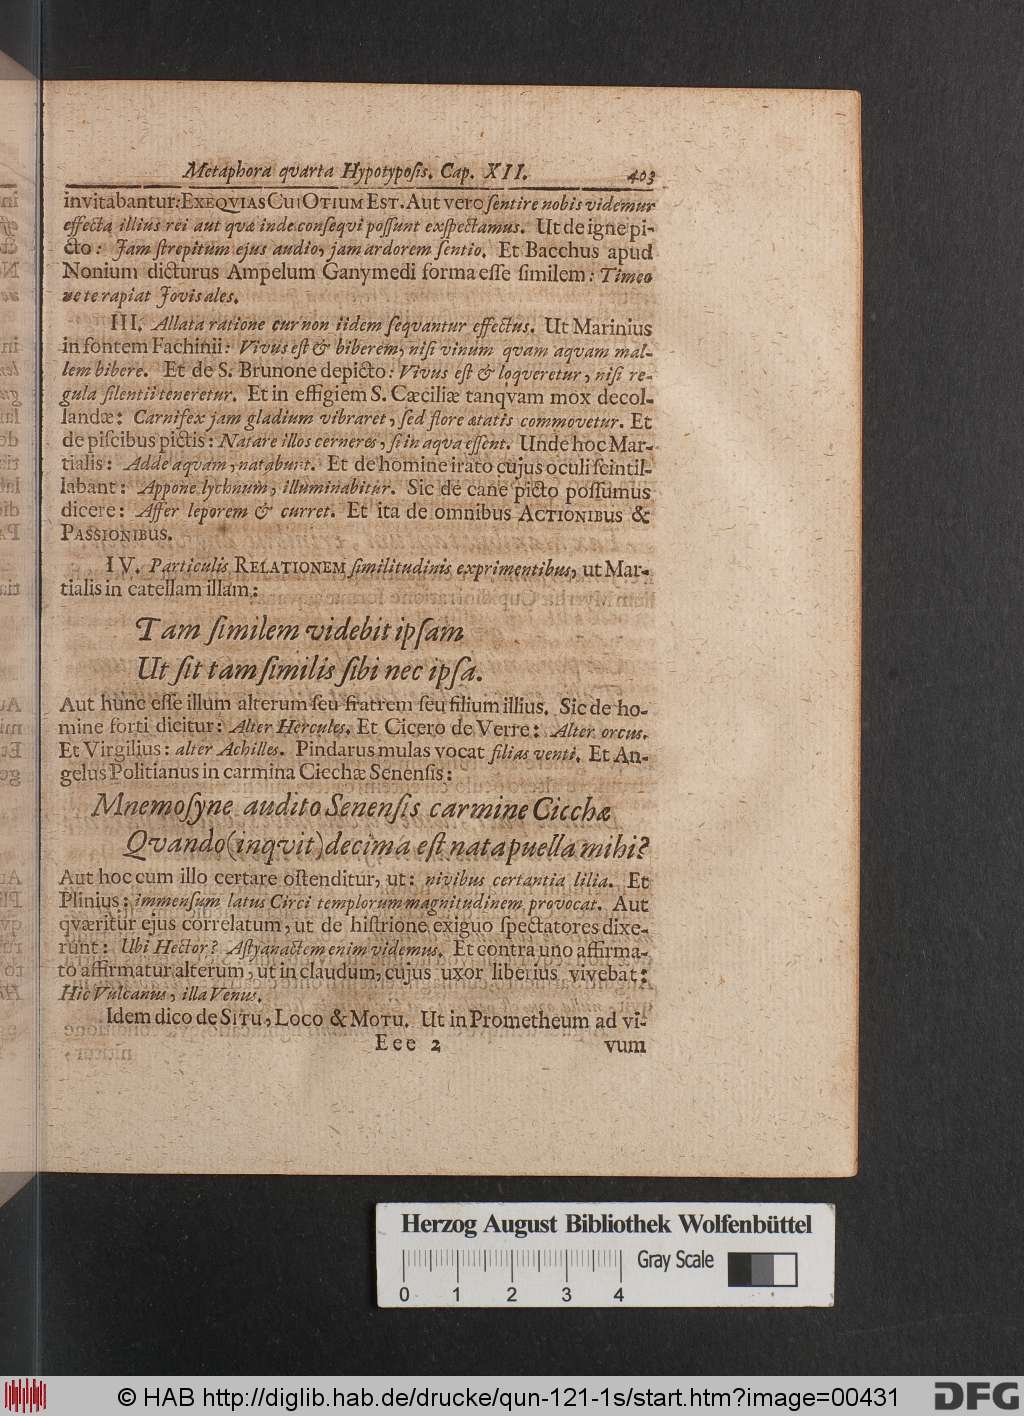 Metaphora qvarta Hypotyposis. Cap. XII. 403
invitabantur: EXEQVIAS CUI OTIUM EST. Aut vero ſentire nobis videmur
effecta illius rei aut quæ inde conſequi poſſunt exſpectamus. Ut de igne pi-
cto: Jam ſtrepitum ejus audio, jam ardorem ſentio. Et Bacchus apud
Nonium dicturus Ampelum Ganymedi forma eſſe ſimilem: Timeo
ne te rapiat Jovis ales.
III. Allata ratione cur non iidem ſeqvantur effectus. Ut Marinius
in fontem Fachinii: Vivus eſt & biberem, niſi vinum qvam aqvam mal-
lem bibere. Et de S. Brunone depicto: Vivus eſt & loqveretur, niſi re-
gula ſilentii teneretur. Et in effigiem S. Cæciliæ tanqvam mox decol-
landæ: Carnifex jam gladium vibraret, ſed flore ætatis commovetur. Et
de piſcibus pictis: Natare illos cerneres, ſi in aqva eſſent. Unde hoc Mar-
tialis: Adde aqvam, natabunt. Et de homine irato cujus oculi ſcintil-
labant: Appone lychnum, illuminabitur. Sic de cane picto poſſumus
dicere: Affer leporem & curret. Et ita de omnibus ACTIONIBUS &
PASSIONIBUS.
IV. Particulis RELATIONEM ſimilitudinis exprimentibus, ut Mar-
tialis in catellam illam:
Tam ſimilem videbit ipſam
Ut ſit tam ſimilis ſibi nec ipſa.
Aut hunc eſſe illum alterum ſeu fratrem ſeu filium illius. Sic de ho-
mine forti dicitur: Alter Hercules. Et Cicero de Verre: Alter orcus.
Et Virgilius: alter Achilles. Pindarus mulas vocat filias venti. Et An-
gelus Politianus in carmina Cicchæ Senenſis:
Mnemoſyne audito Senenſis carmine Cicchæ
Qvando (inqvit) decima eſt nata puella mihi?
Aut hoc cum illo certare oſtenditur, ut: nivibus certantia lilia. Et
Plinius: immenſum latus Circi templorum magnitudinem provocat. Aut
qværitur ejus correlatum, ut de hiſtrione exiguo ſpectatores dixe-
runt: Ubi Hector? Aſtyanactem enim videmus. Et contra uno affirma-
to affirmatur alterum, ut in claudum, cujus uxor liberius vivebat:
Hic Vulcanus, illa Venus.
Idem dico de SITU, LOCO & MOTU. Ut in Prometheum ad vi-
Eee 2 vum
Herzog August Bibliothek Wolfenbüttel
Gray Scale
0 1 2 3 4
© HAB http://diglib.hab.de/drucke/qun-121-1s/start.htm?image=00431
DFG